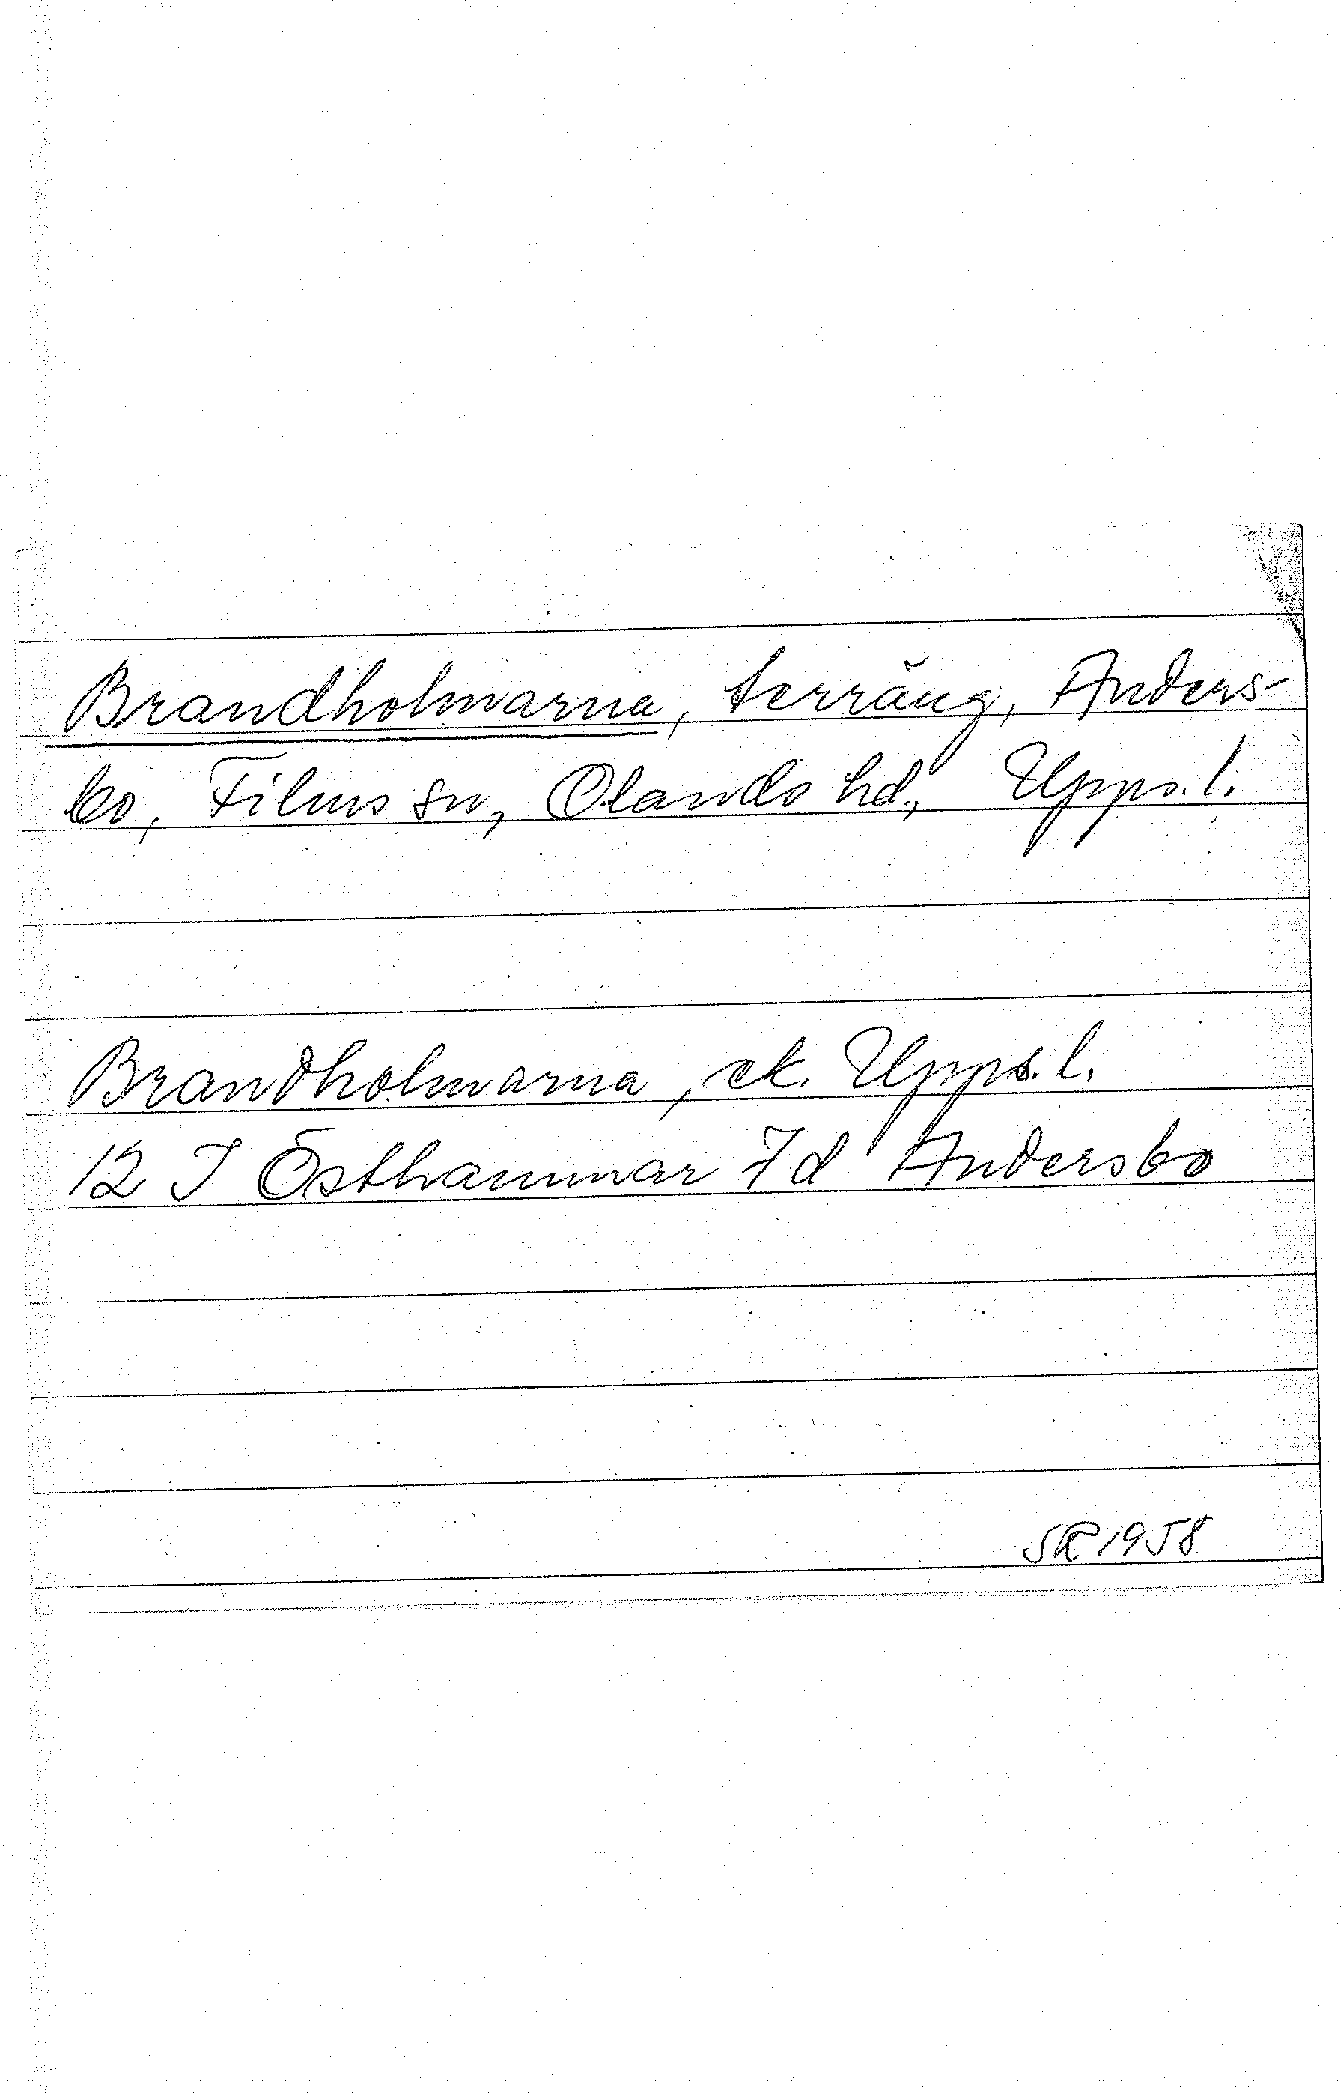 Brandholmarna, terräng, Anders-
bo, Films sn, Olands hd, Upps.l.
Brandholmarna, ek. Upps.l.
12 I Östhammar 7d Andersbo
SR 1958